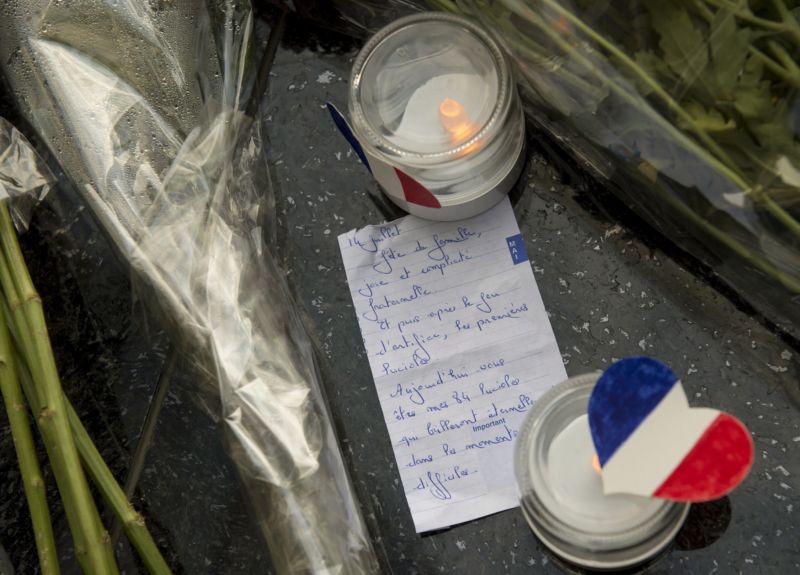 14 juillet
MAI
fête de famille,
joie et complicité
fraternelle.
Et puis après le feu
d'artifice, les premières
lucioles
Aujourd'hui vous
êtes mes 84 lucioles
qui brilleront éternelle
Important
dans les moments
difficiles.